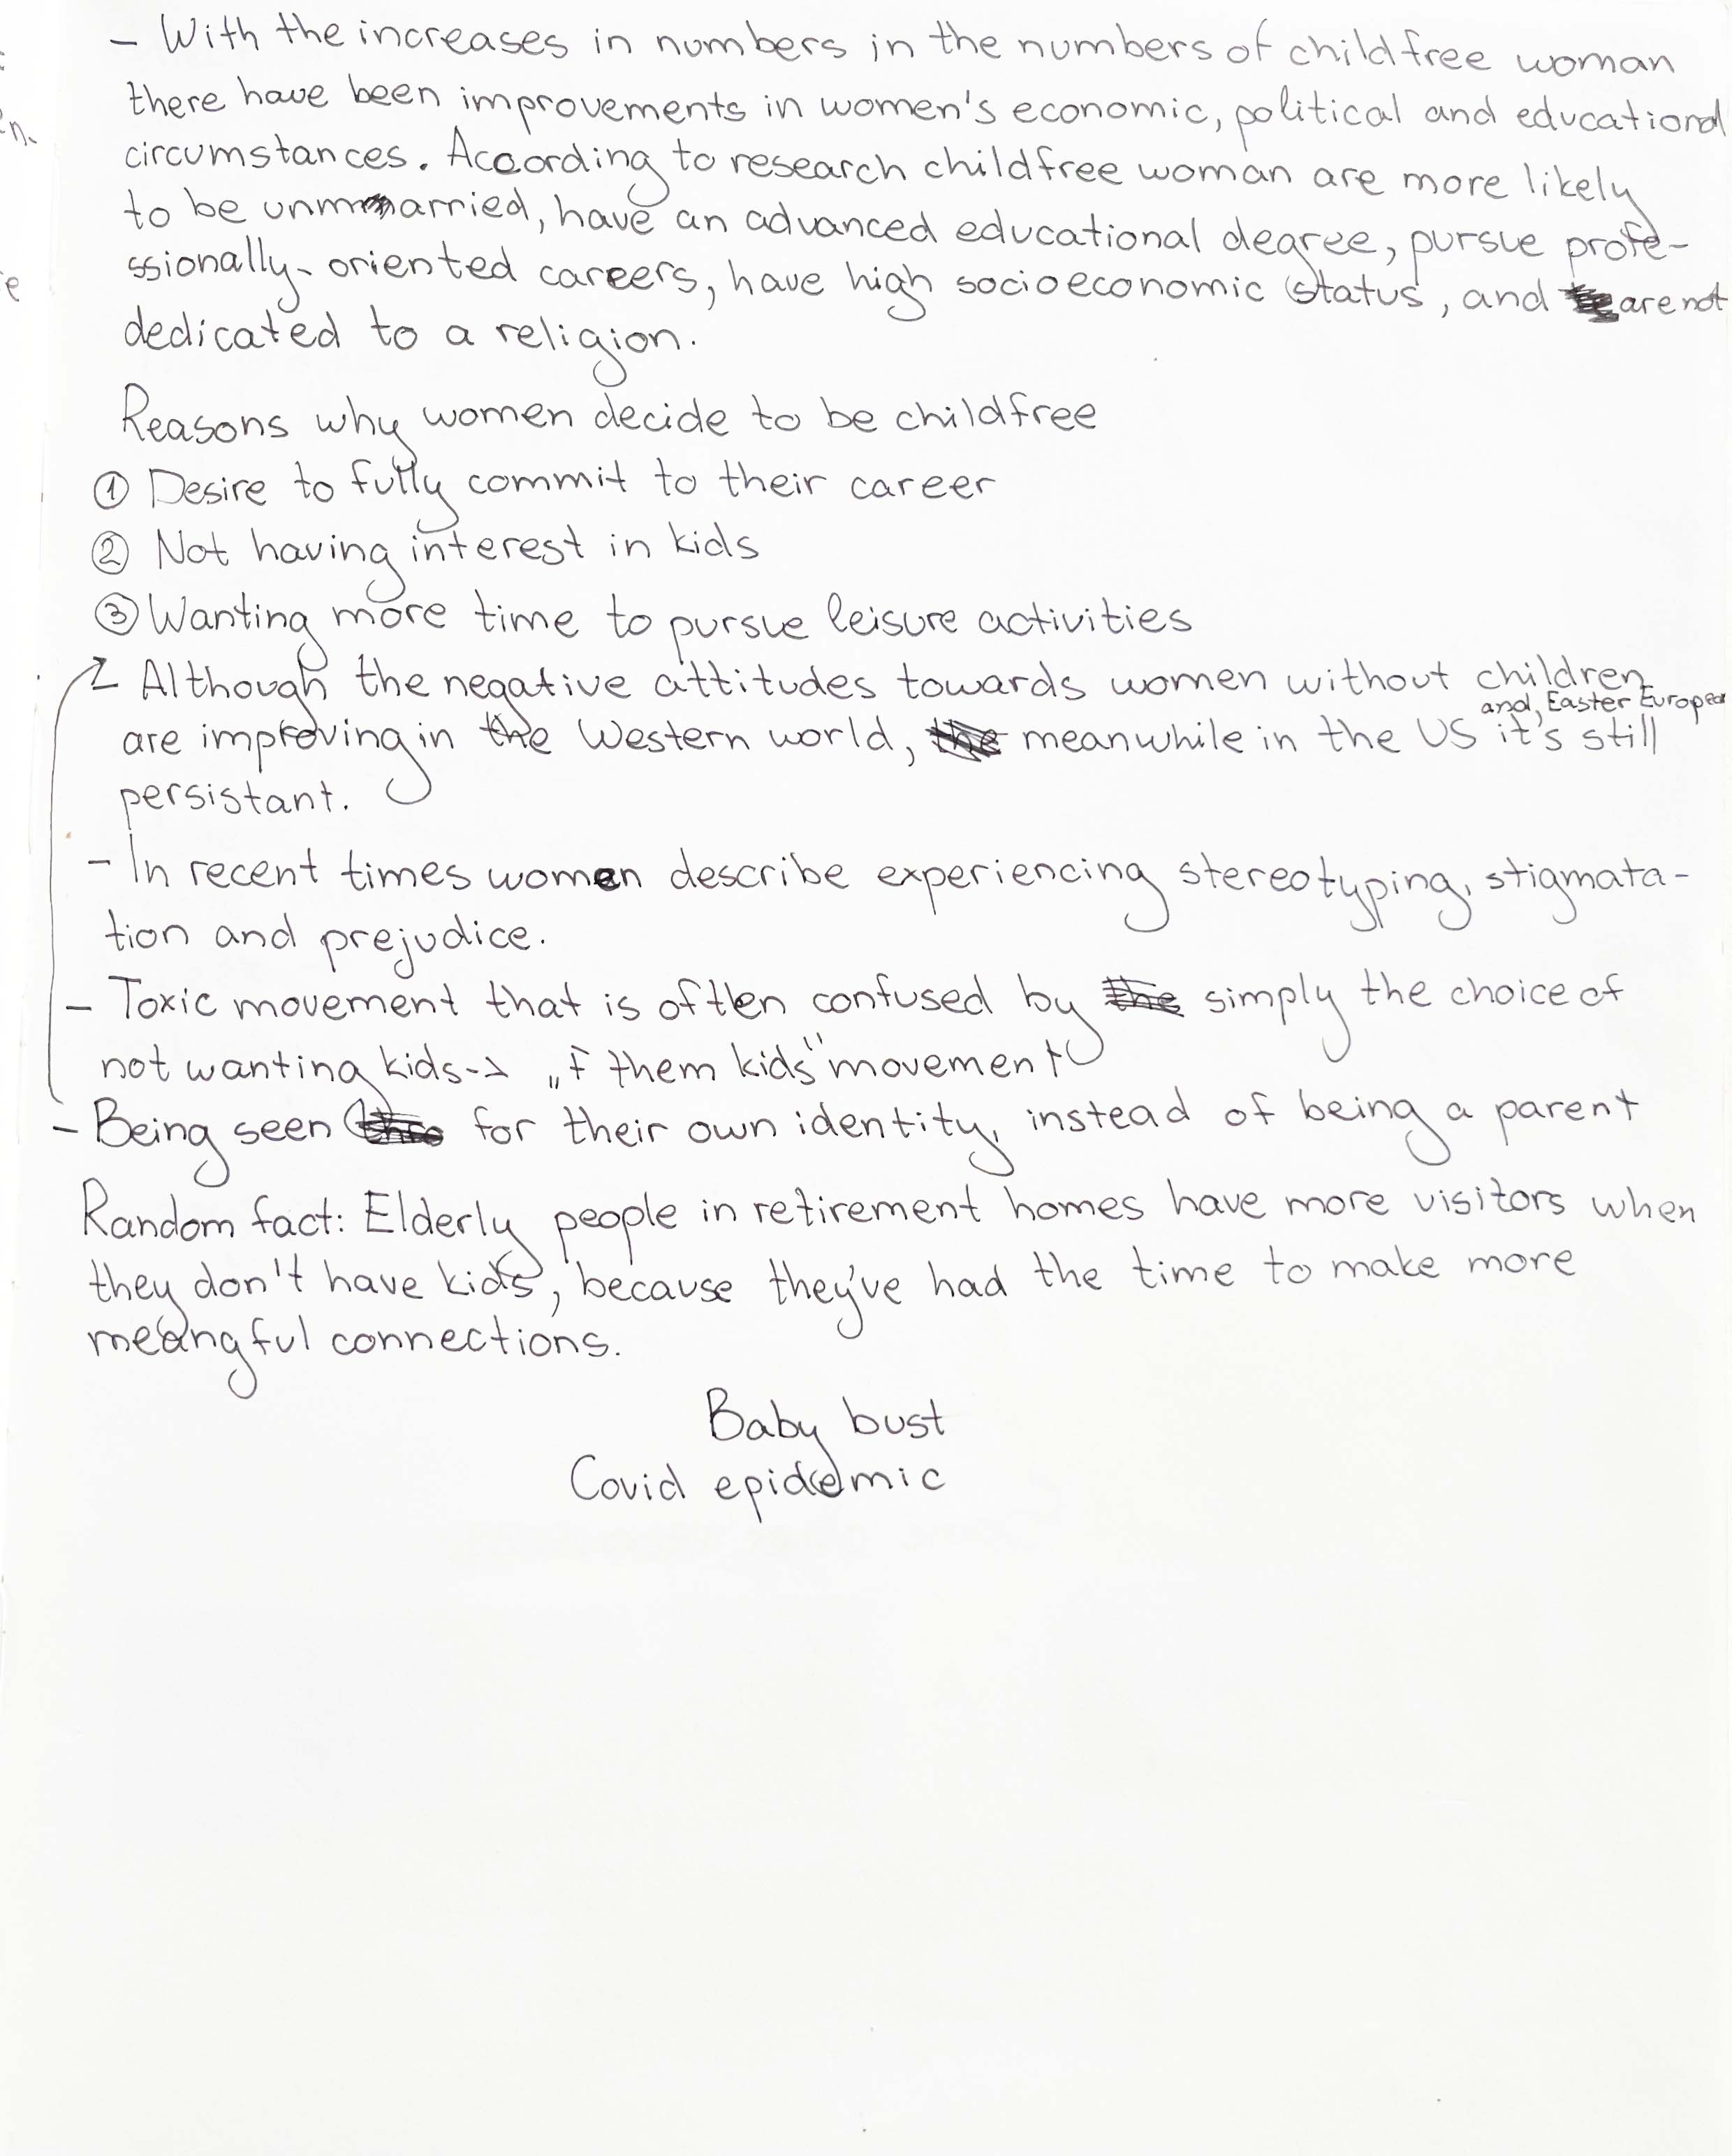 - With the increases in numbers in the numbers of childfree woman
there have been improvements in women's economic, political and educational
circumstances. According to research childfree woman are more likely
to be unmarried, have an advanced educational degree, pursue profe-
ssionally-oriented careers, have high socioeconomic status, and are not
dedicated to a religion.
Reasons why women decide to be childfree
① Desire to fully commit to their career
② Not having interest in kids
③ Wanting more time to pursue leisure activities
- Although the negative attitudes towards women without children
and, Easter Europea
are improving in the Western world, meanwhile in the US it's still
persistant.
- In recent times women describe experiencing stereotyping, stigmata-
tion and prejudice.
- Toxic movement that is often confused by simply the choice of
not wanting kids-> „f them kids" movement
- Being seen for their own identity, instead of being a parent
Random fact: Elderly people in retirement homes have more visitors when
they don't have kids, because they've had the time to make more
meangful connections.
Baby bust
Covid epidemic